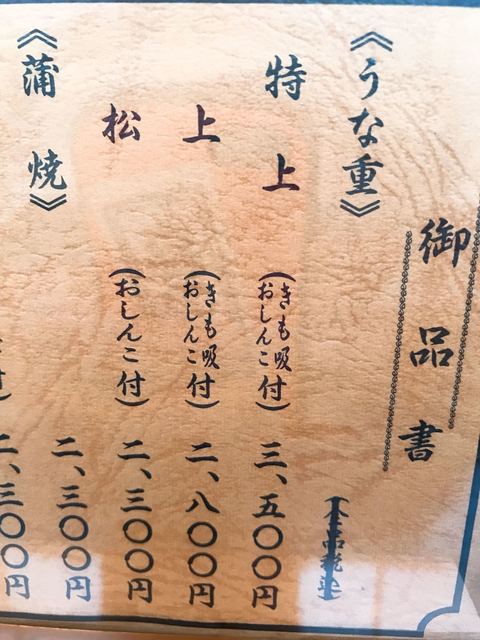 御品書
《うな重》
(全品税込)
特上 (きも吸 おしんこ付) 三、五〇〇円
上 (きも吸 おしんこ付) 二、八〇〇円
松 (おしんこ付) 二、三〇〇円
《蒲焼》 二、三〇〇円
付) 二、三〇〇円